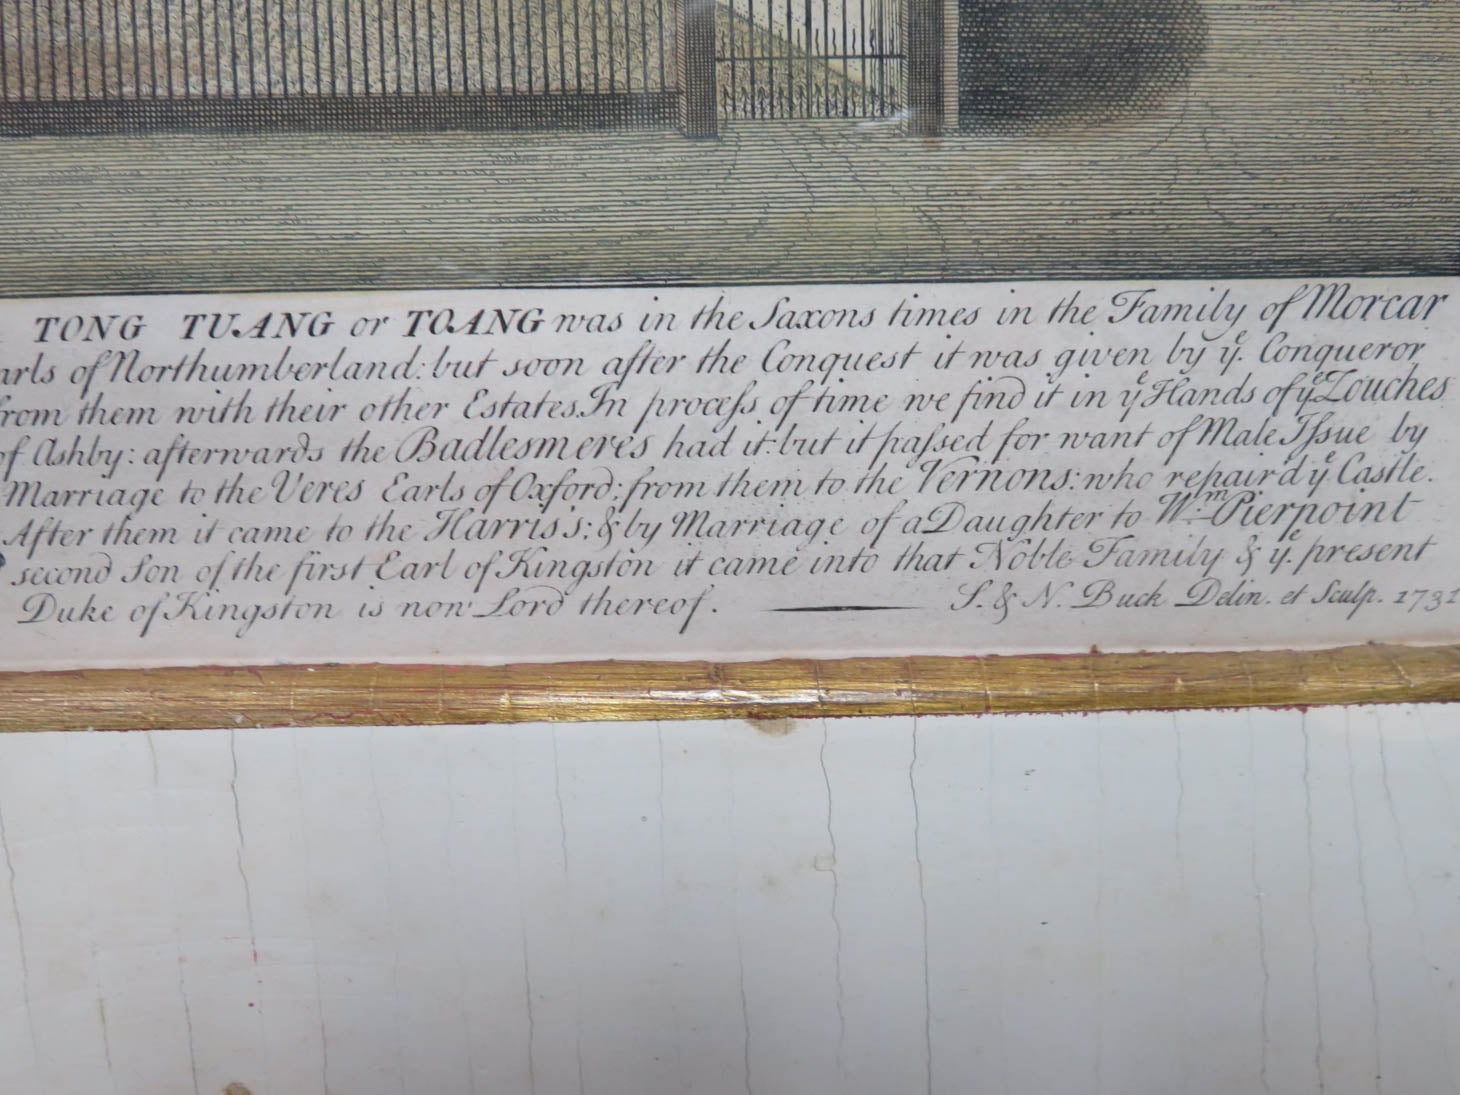 TONG TUANG or TOANG was in the Saxons times in the Family of Morcar
arls of Northumberland: but soon after the Conquest it was given by yͤ. Conqueror
from them with their other Estates. In proceſs of time we find it in yͤ Hands of yͤ Zouches
of Ashby: afterwards the Badlesmeres had it: but it paſsed for want of Male Iſsue by
Marriage to the Veres Earls of Oxford; from them to the Vernons: who repair'd yͤ. Castle.
After them it came to the Harris's: & by Marriage of a Daughter to Wᵐ. Pierpoint
second Son of the first Earl of Kingston it came into that Noble Family & yͤ. present
Duke of Kingston is now Lord thereof. S. & N. Buck Delin. et Sculp. 1731